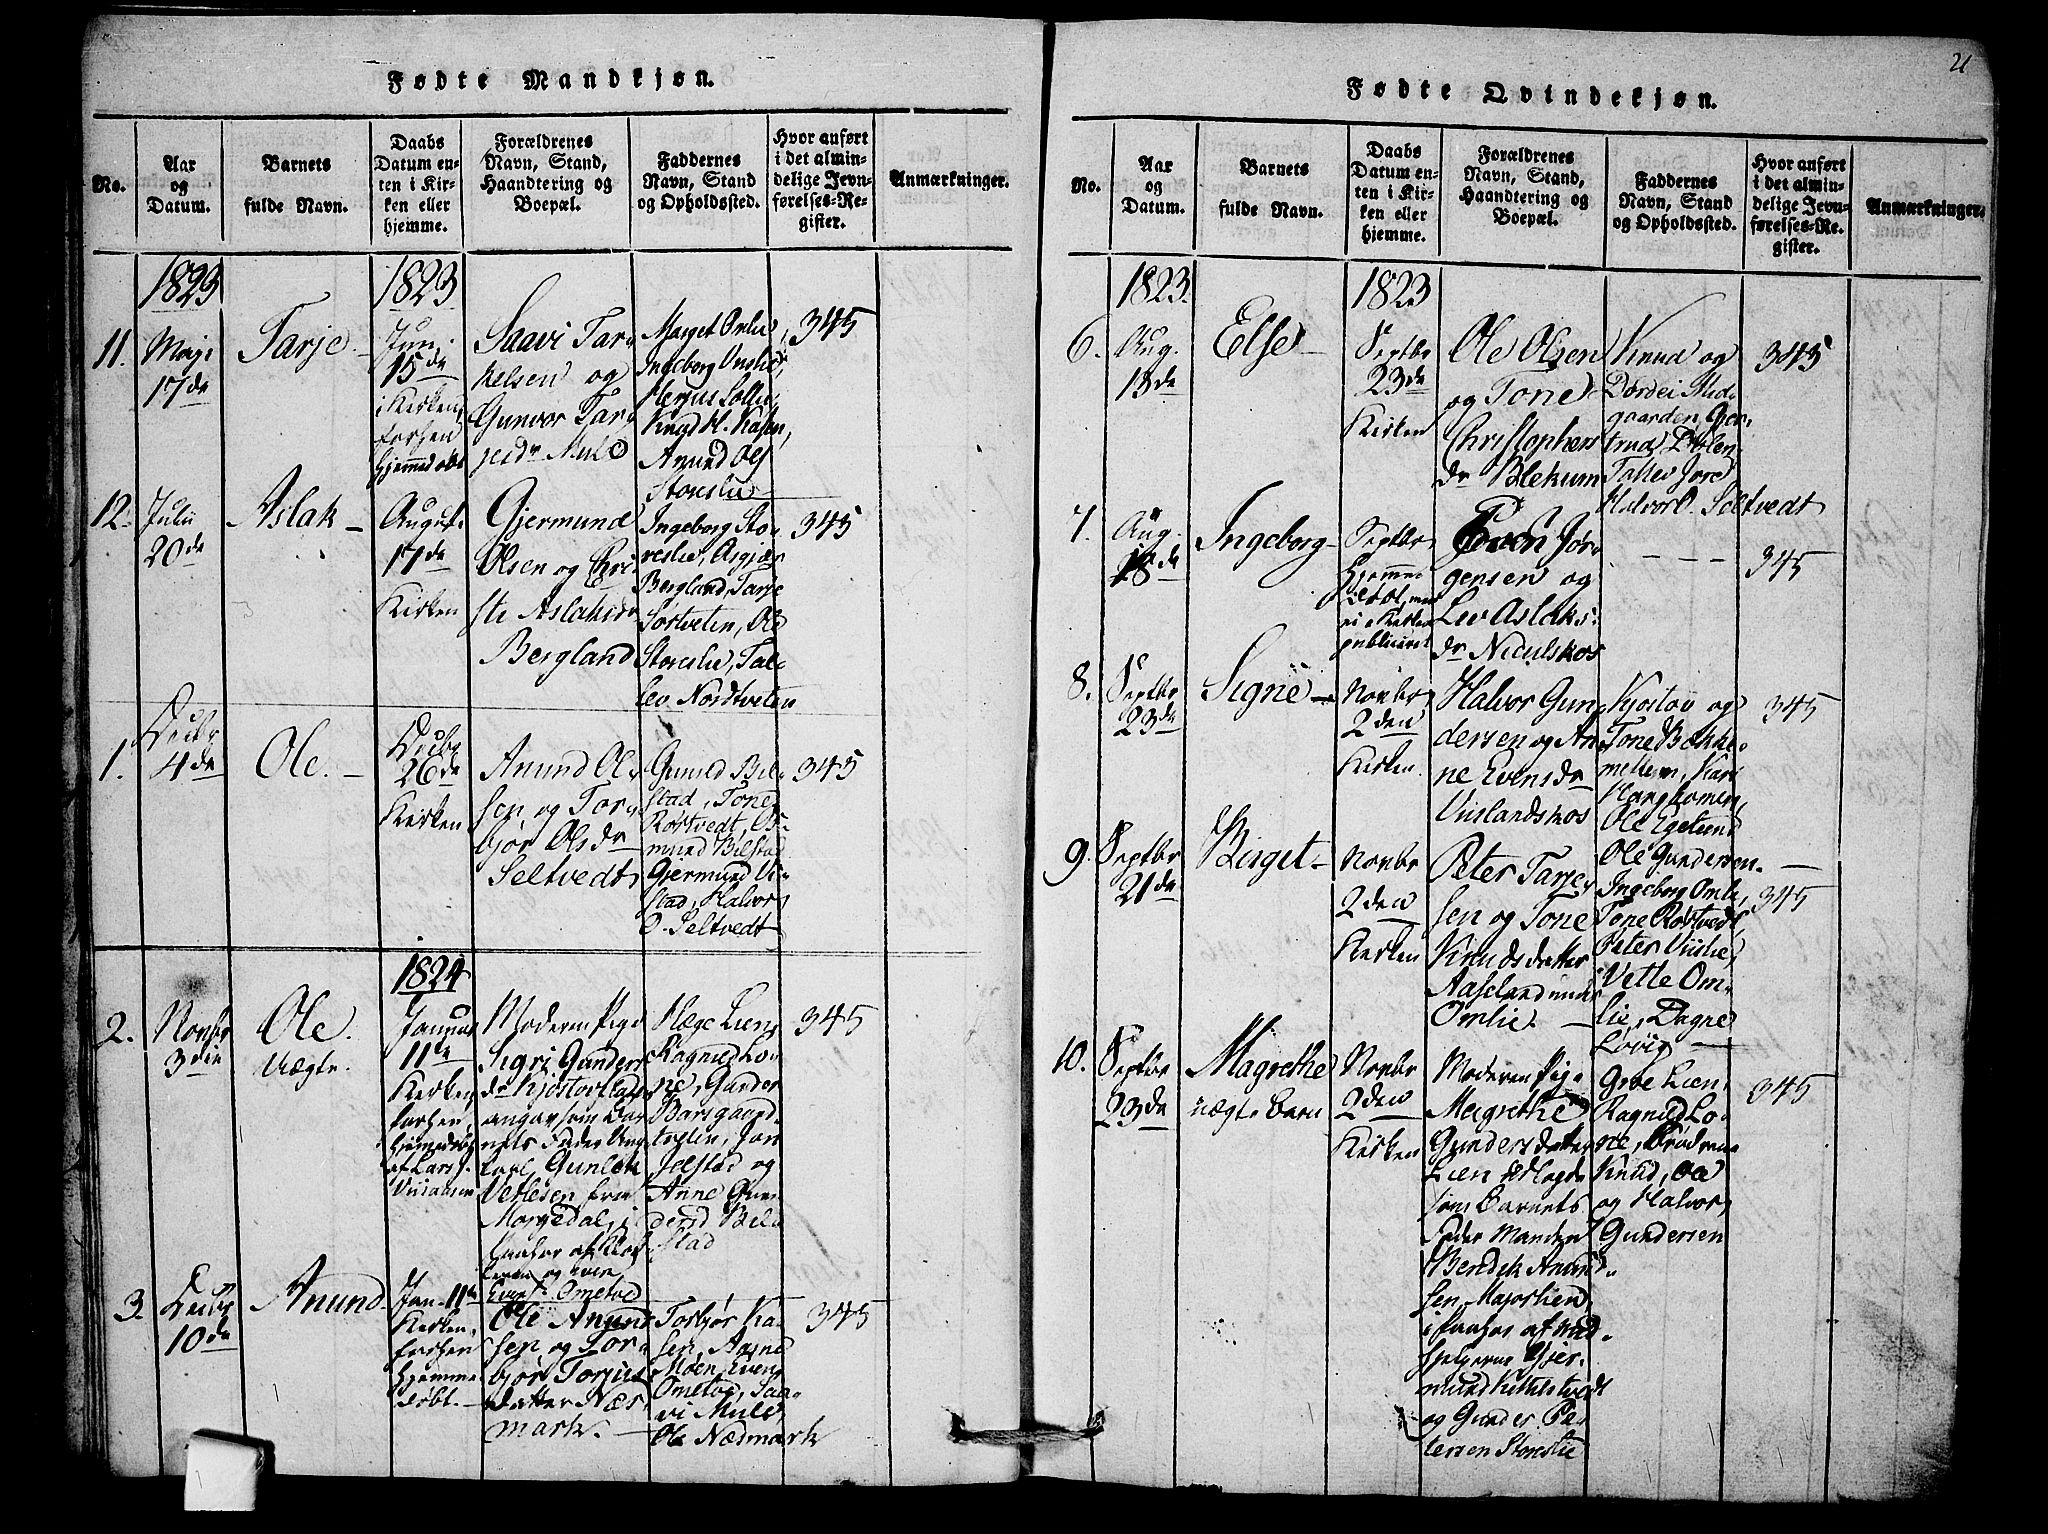 Fødte Mandkjøn.
No.
Aar
og
Datum.
Barnets
fulde Navn.
Daabs
Datum en-
ten i Kir-
ken eller
hjemme.
Forældrenes
Navn, Stand,
Haandtering og
Boepæl.
Faddernes
Navn, Stand
og Opholdssted.
Hvor anført
i det almin-
delige Jevn-
førelses-Re-
gister.
Anmærkninger.
1823
11.
Maji
17de
Tarje
1823
Juni
15de
i Kirken,
forhen
hjemmedøbt
Saavi Tar-
kelsen og
Gunvor Tar-
jeidr
Marget Omlie,
Ingeborg
Knud H. Kasen,
Anund Ols
Storeslie
345
12.
Julii
20de
Aslak
August
17de
Kirken
Gjermund
Olsen og Kri-
sti Aslaksdr
Bergland
Ingeborg Sto-
reslie, Asgjær
Bergland, Tarje
Sørtveten, Ole
Storeslie, Tal-
lev Nordtveten
345
1.
Decbr
4de
Ole.
Decbr
26de
Kirken
Anund Ol-
sen og Tor-
bjør Olsdr
Seltvedt
Gunild Bil-
stad, Tone
Røstvedt, Os-
mund Bilstad
Gjermund Vi-
stad, Halvor
O. Seltvedt
345
2.
Novbr
3die
Ole.
uægte.
1824
Januar
11te
Kirken,
forhen
hjemmedøbt
af Lars
Moderen Pige
Sigri Gunders
dr
angav som Bar-
nets Fader Ung-
karl, Gunlek
Vetlesen fra
Morgedal, i
og Even
Omstod
Hæge Lien,
Ragnild Lo-
ne, Gunder
Barsgaard-
teglen, Jon
Jelstad og
Anne Gun-
dersd Bil-
stad
345
3.
Decbr
10de
Anund
Jan. 11te
Kirken,
forhen
hjemme-
døbt.
Ole Anund-
sen og Tor-
bjør Torjus
datter Næs-
mark.
Torbjør Ka-
sen, Aagne
Moen, Even
Omstod, Saa-
vi Mule,
Ole Nædmark
345
21
Fødte Qvindekjøn.
No.
Aar
og
Datum.
Barnets
fulde Navn.
Daabs
Datum en-
ten i Kir-
ken eller
hjemme.
Forældrenes
Navn, Stand,
Haandtering og
Boepæl.
Faddernes
Navn, Stand
og Opholdssted.
Hvor anført
i det almin-
delige Jevn-
førelses-Re-
gister.
Anmærkninger.
1823.
6.
Aug.
13de
Else
1823
Septbr
23de
Kirken
Ole Olsen
og Tone
Christophers
dr Blekum
Knud og
Dordei Mid-
gaarden, Ger-
trud Dølen,
Halvor O. Seltvedt
345
7.
Aug.
18de
Ingeborg
Septbr
hjemme
publiceret
Even Jør-
gensen og
Liv Aslaks-
dr
345
8.
Septbr
23de
Signe
Novbr
2den
Kirken.
Halvor Gun-
dersen og An-
ne Evensdr
Viislandskos
Kjostov og
Tone Bække-
mellem, Kari
Ole Gundersen.
345
9.
Septbr
21de
Berget
Novbr
2den
Kirken
Peter Tarje-
sen og Tone
Knudsdatter
Aaseland under
Omlie.
Ingeborg Omlie,
Tone Røstvedt,
Peter Viislie,
Vetle Om-
lie, Dagne
345
10.
Septbr
23de
Magrethe
uægte Barn
Novbr
2den
Kirken
Moderen Pige
Magrethe
Gundersdatter
Lien udlagde
som Barnets
Fader Manden
Bendik Anund-
sen Majorlien,
i Paahør af Med-
hjelperne Gjer-
mund Kittelstvedt
og Gunder Pe-
tersen Storeslie
Groe Lien,
Ragnild Lo-
ne, Brødrene
Knud, Ole
og Halvor
Gundersen
345